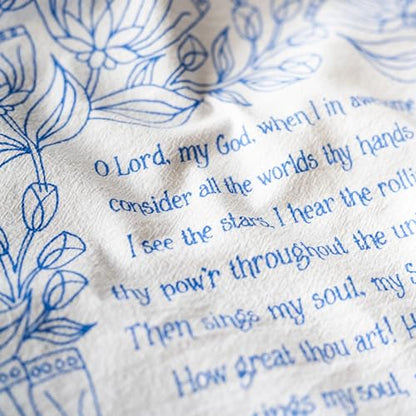 O Lord, my God, when I in awesome
consider all the worlds thy hands
I see the stars, I hear the rolli
thy pow'r throughout the un
Then sings my soul, my S
How great thou art! H
sings my soul,